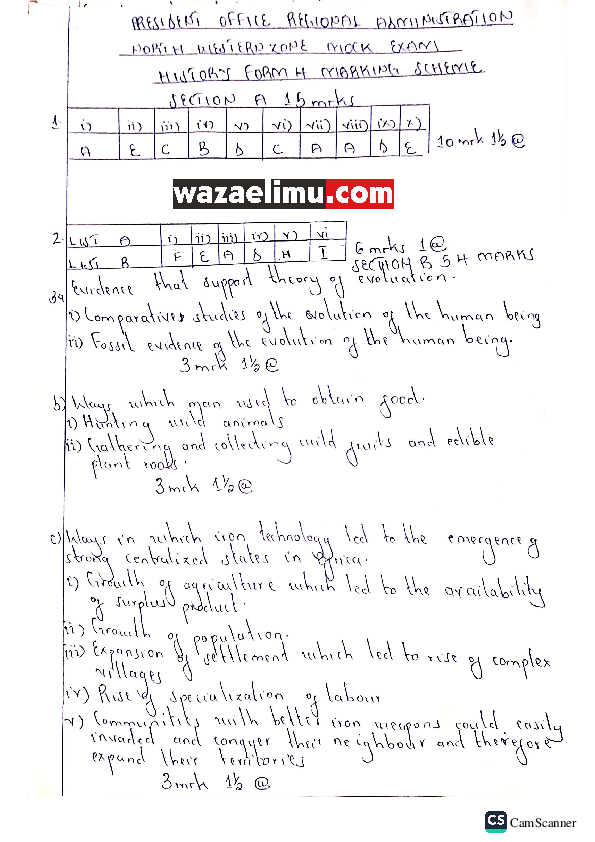 PRESIDENT OFFICE REGIONAL ADMINISTRATION
NORTH WESTERN ZONE MOCK EXAM
HISTORY FORM 4 MARKING SCHEME
SECTION A 15 mrks
1. i) ii) iii) iv) v) vi) vii) viii) ix) x)
A E C B D C A A D E 10 mrk 1½ @
wazaelimu.com
2. LIST A i) ii) iii) iv) v) vi
LIST B F E A D H I 6 mrks 1 @
SECTION B 54 MARKS
3a Evidence that support theory of evoluation.
i) Comparatives studies of the evolution of the human being
ii) Fossil evidence of the evolution of the human being.
3 mrk 1½ @
b) Ways which man used to obtain food.
i) Hunting wild animals
ii) Gathering and collecting wild fruits and edible
plant roots.
3 mrk 1½ @
c) Ways in which iron technology led to the emergence of
strong centralized states in Africa.
i) Growth of agriculture which led to the availability
of surplus product.
ii) Growth of population.
iii) Expansion of settlement which led to rise of complex
villages
iv) Rise of specialization of labour
v) Communitits with better iron weapons could easily
invaded and conquer their neighbour and therefore
expand their territories
3 mrk 1½ @
CS CamScanner